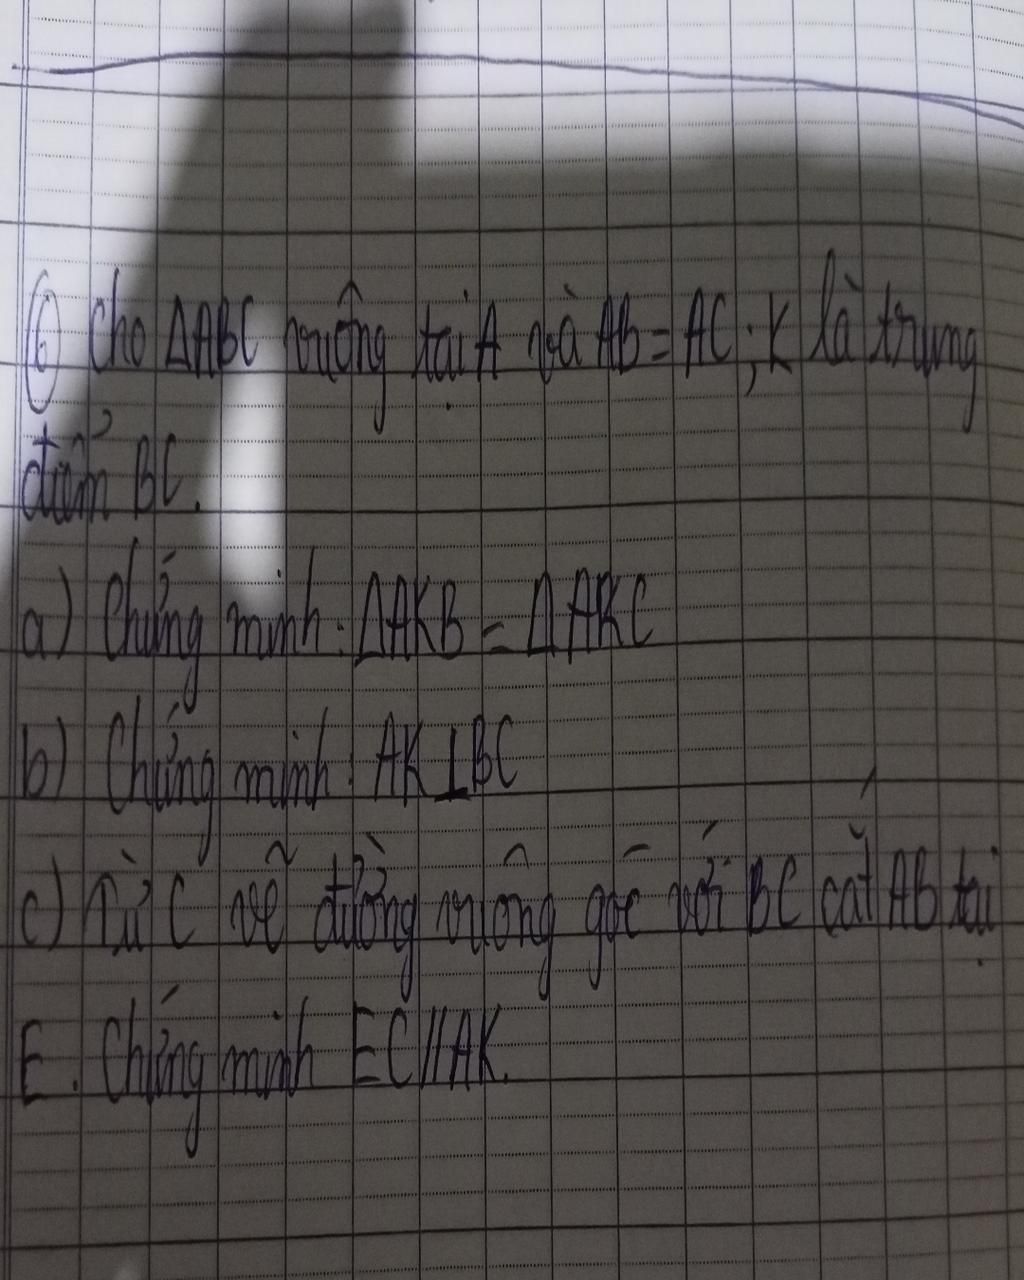 ⑥ Cho ΔABC vuông tại A và AB = AC; K là trung
điểm BC.
a) Chứng minh: ΔAKB = ΔAKC
b) Chứng minh: AK⊥BC
c) Từ C vẽ đường vuông góc với BC cắt AB tại
E. Chứng minh EC//AK.